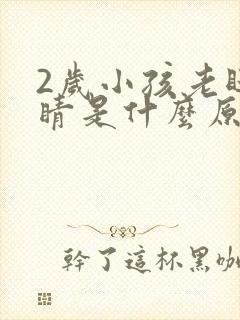 2歲小孩老眨
睛是什麼原
幹了這杯黑咖